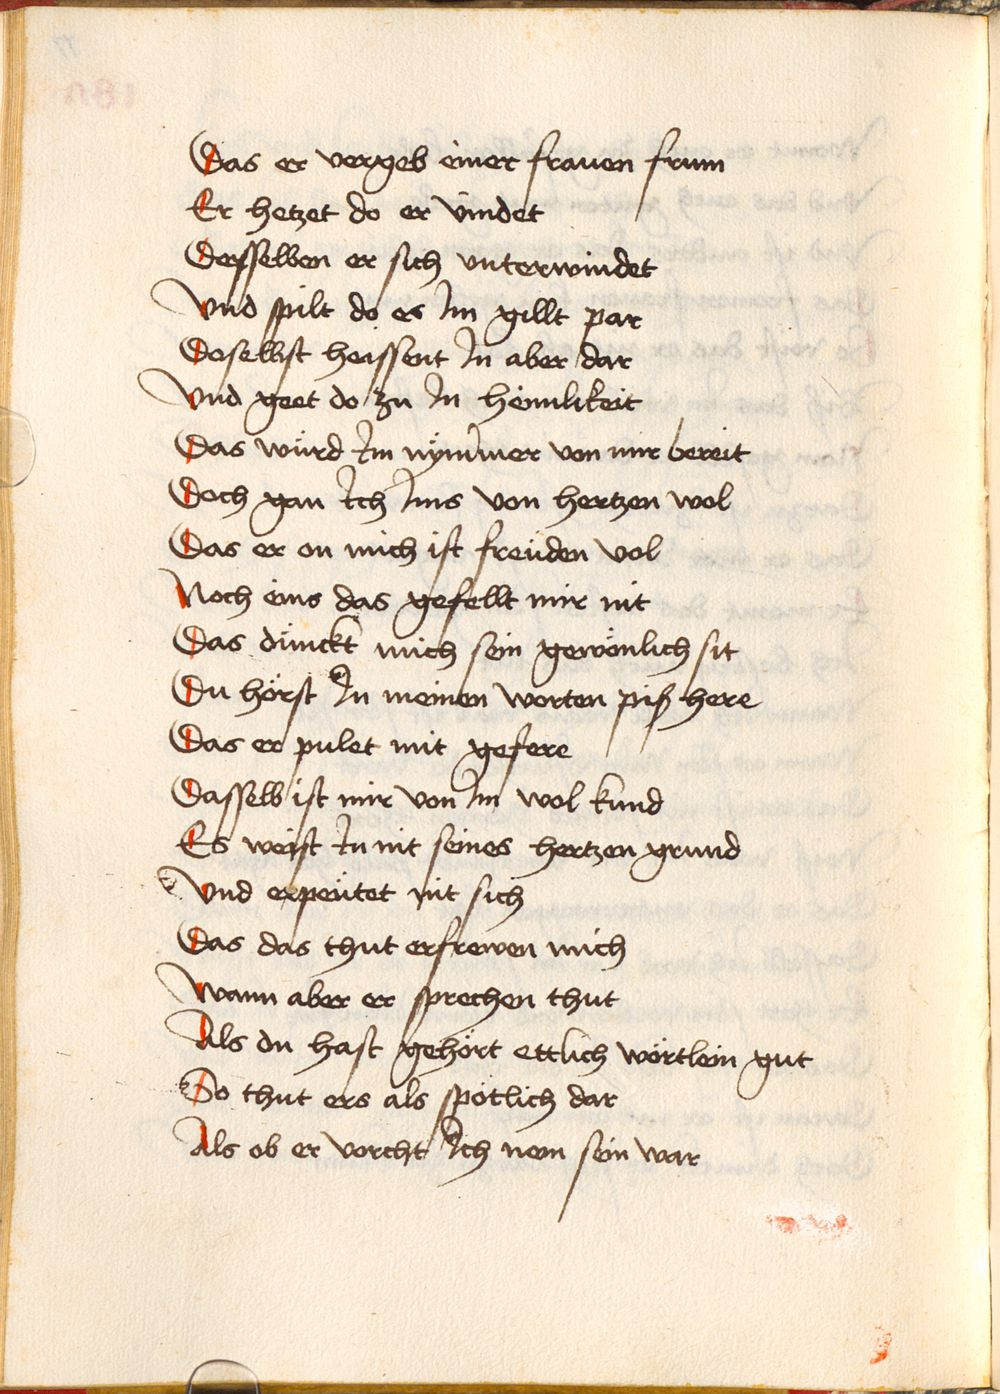 Das er vergeb einer frauen frum
Er hetzet do er vindet
Desselben er sich vnterwindet
Vnd spilt do es Im gillt par
Doselbst heissent In aber dar
Vnd geet do zu In heimlikeit
Das würd Im nÿmmer von mir bereit
Doch gan Ich Ims von hertzen wol
Das er on mich ist freuden vol
Noch eins das gefellt mir nit
Das dünckt mich sein gewönlich sit
Du hörst In meinen worten piß here
Das er pulet mit gefere
Dasselb ist mir von Im wol kund
Es weist In nit seines hertzen grund
Vnd erpeütet nit sich
Das das thut erfrewen mich
Wann aber er sprechen thut
Als du hast gehört ettlich wörtlein gut
So thut ers als spötlich dar
Als ob er vorcht Ich nem sein war